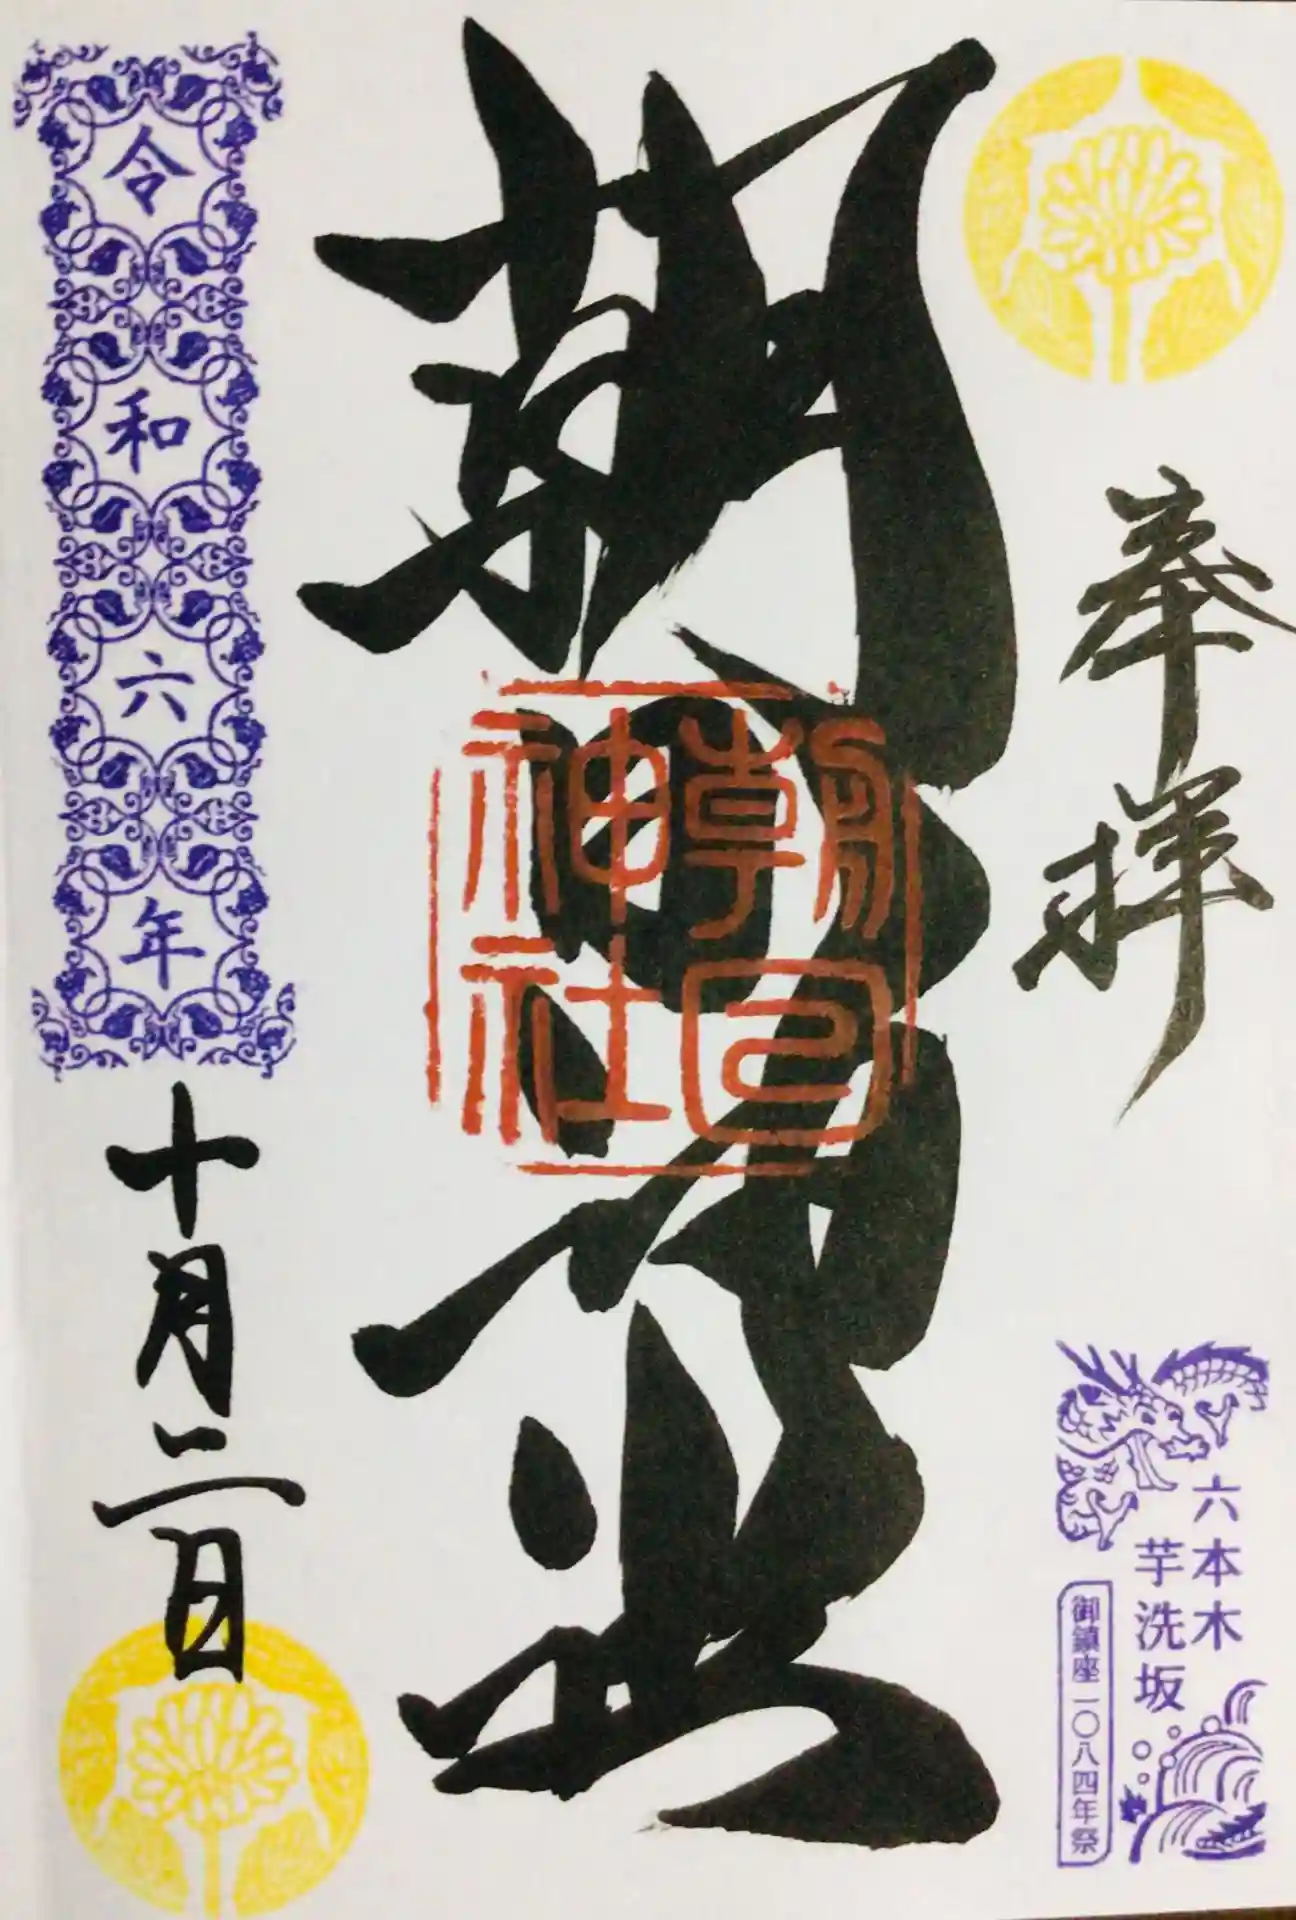 奉拝
六本木
芋洗坂
御鎮座一〇八四年祭
朝日神社
朝日
神社
令和六年
十月二日